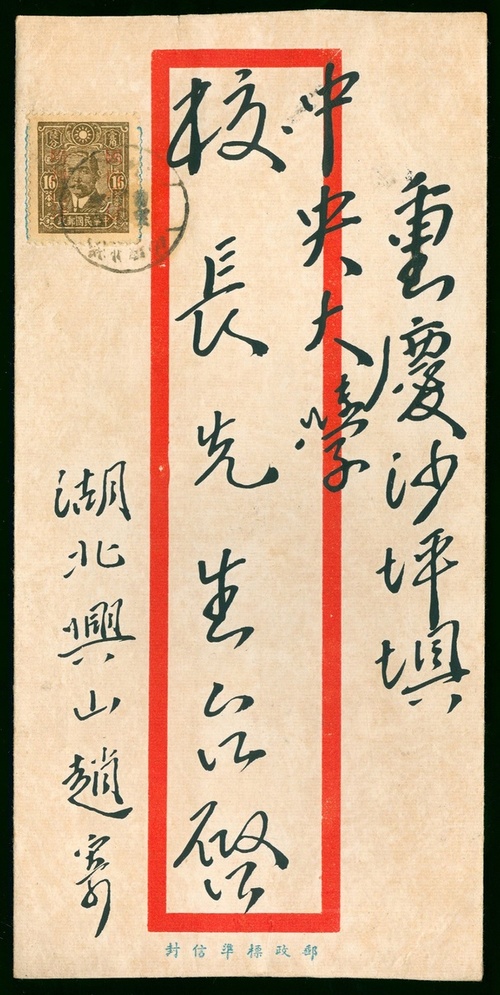 重慶沙坪垻
中央大學
校長先生台啓
湖北興山趙寄
16 16
中華民國郵政
郵政標準信封